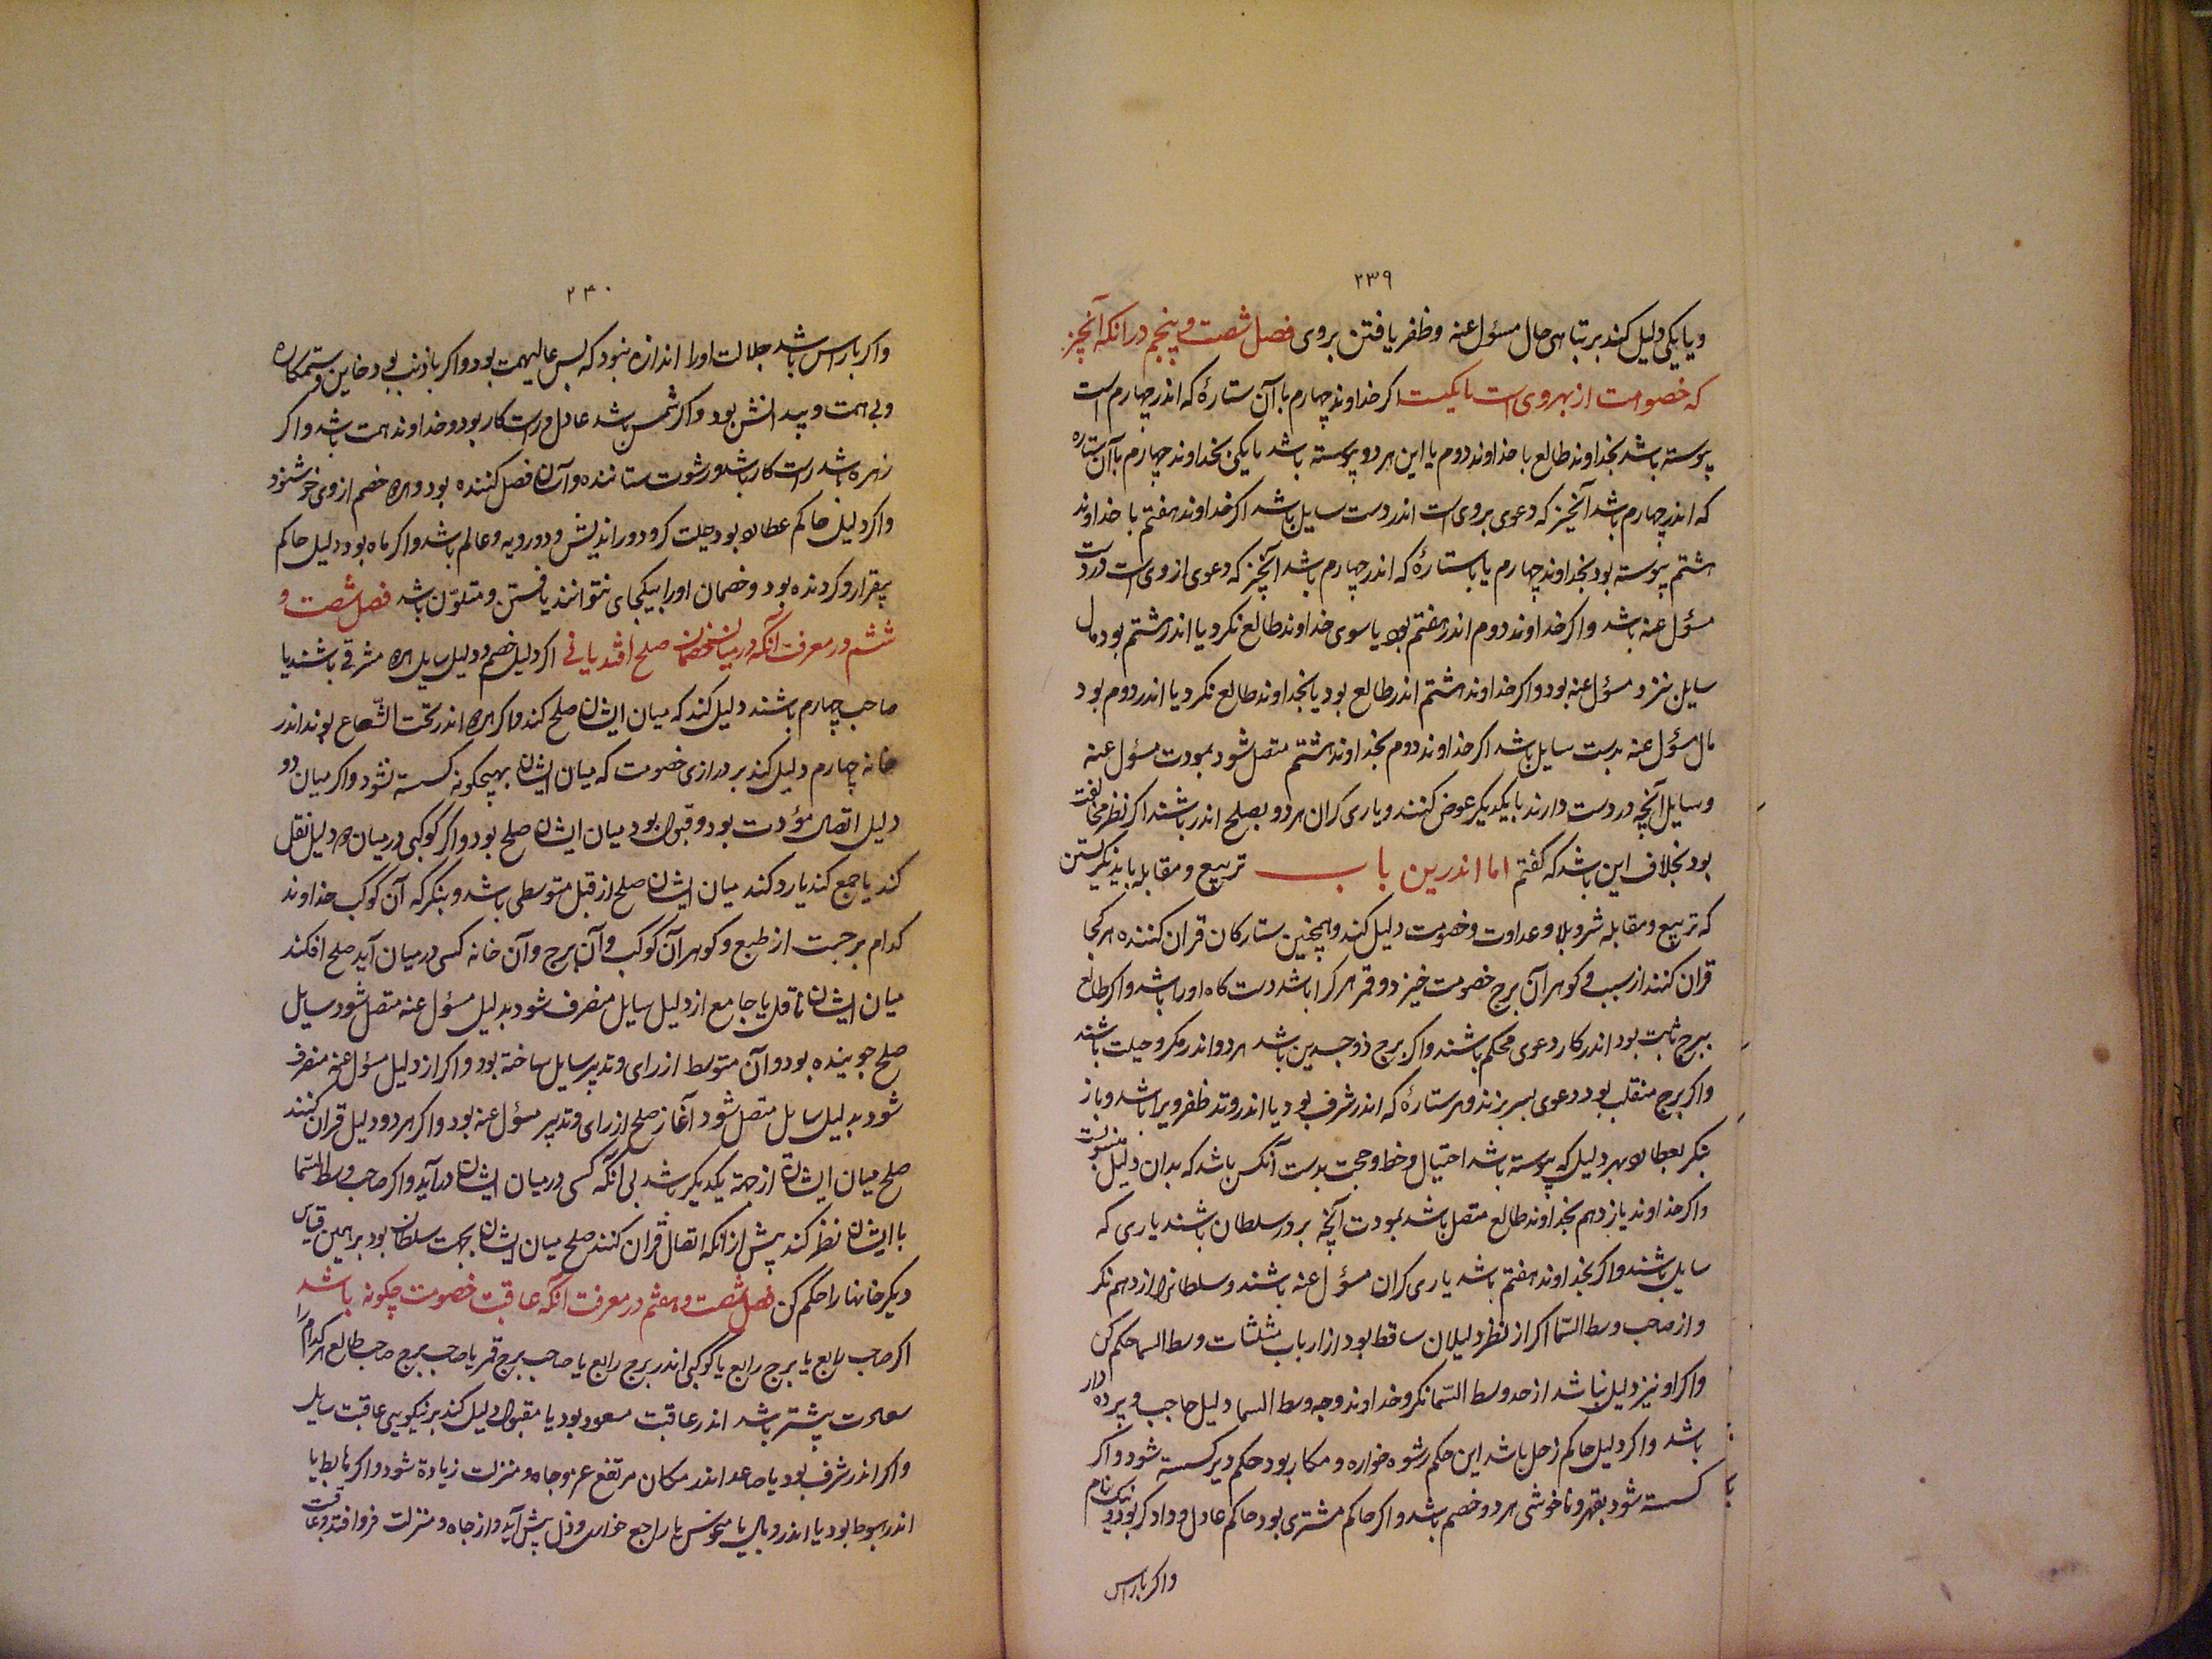 ۲۳۹
ویا یکی دلیل کند بر تباهی حال مسؤل عنه وظفر یافتن بروی فصل شصت و پنجم در انکه آنچیز
که خصومت از بهر وی است با کیست اکر خداوند چهارم با آن ستارهٔ که اندر چهارم است
پیوسته باشد بخداوند طالع با خداوند دوم یا این هر دو پیوسته باشد با یکی بخداوند چهارم با آن ستاره
که اندر چهارم باشد آنچیز که دعوی بروی است اندر دست سایل باشد اکر خداوند هفتم با خداوند
هشتم پیوسته بود بخداوند چهارم یا با ستارهٔ که اندر چهارم باشد آنچیز که دعوی از وی است در دست
مسؤل عنه باشد واکر خداوند دوم اندر هفتم بود یا سوی خداوند طالع نکرد یا اندر هشتم بود مال
سایل نزد مسؤل عنه بود واکر خداوند هشتم اندر طالع بود یا بخداوند طالع نکرد یا اندر دوم بود
مال مسؤل عنه بدست سایل باشد اکر خداوند دوم بخداوند هشتم متصل شود بمودت مسؤل عنه
وسایل آنچه در دست دارند با یکدیکر عوض کنند ویاری کران هر دو بصلح اندر باشند اکر نظر مخالفت
بود بخلاف این باشد که کفتم اما اندرین باب تربیع ومقابله باید نکریستن
که تربیع ومقابله شر وبلا وعداوت وخصومت دلیل کند وهمچنین ستارکان قران کننده هر کجا
قران کنند از سبب و کوهر آن برج خصومت خیزد وقمر هر کرا باشد دست کاه اورا باشد واکر طالع
ببرج ثابت بود اندر کار دعوی محکم باشند واکر برج ذو جسدین باشد هر دو اندر مکر وحیلت باشند
واکر برج منقلب بود دعوی بسر بزند وهر ستارهٔ که اندر شرف بود یا اندر وتد ظفر ویرا باشد وباز
بنکر بعطارد بهر دلیل که پیوسته باشد احتیال وخط وحجت بدست آنکس باشد که بدان دلیل منسوبست
واکر خداوند یازدهم بخداوند طالع متصل باشد بمودت آنچه بر در سلطان باشند یاری که
سایل باشند واکر بخداوند هفتم باشد یاری کران مسؤل عنه باشند وسلطانرا از دهم نکر
واز صاحب وسط السّما اکر از نظر دلیلان ساقط بود از ارباب مثلثات وسط السما حکم کن
واکر او نیز دلیل نباشد از حد وسط السّما نکر وخداوند وجه وسط السما دلیل حاجب وپرده دار
باشد واکر دلیل حاکم زحل باشد این حکم رشوه خواره ومکار بود حکم دیر کسسته شود واکر
کسسته شود بقهر وناخوشی هر دو خصم باشد واکر حاکم مشتری بود حاکم عادل و دادکر بود ونیک نام
واکر باراس
۲۴۰
واکر باراس باشد جلالت اورا اندازه نبود که بس عالیهمت بود واکر باذنب بود خاین وستمکاره
وبی همت وبیدانش بود واکر شمس باشد عادل وراست کار بود وخداوند همت باشد واکر
زهره باشد راست کار باشد ورشوت ستاننده وآسان فصل کننده بود وهر دو خصم از وی خوشنود
واکر دلیل حاکم عطارد بود حیلت کر ودوراندیش ودورویه وعالم باشد واکر ماه بود دلیل حاکم
بیقرار وکردنده بود وخصمان اورا بیکجای نتوانند یافتن ومتلوّن باشد فصل شصت و
ششم در معرفت آنکه در میان خصمان صلح افتد یا نی اکر دلیل خصم ودلیل سایل هر دو مشرقی باشند یا
صاحب چهارم باشند دلیل کند که میان ایشان صلح کند واکر هر دو اندر تحت الشّعاع بوند اندر
خانه چهارم دلیل کند بر درازی خصومت که میان ایشان بهیچکونه کسسته نشود واکر میان دو
دلیل اتصال مؤدت بود وقبول بود میان ایشان صلح بود واکر کوکبی در میان دو دلیل نقل
کند یا جمع کند یا رد کند میان ایشان صلح از قبل متوسطی باشد وبنکر که آن کوکب خداوند
کدام برجست از طبع وکوهر آن کوکب وآن برج وآن خانه کسی در میان آید صلح افکند
میان ایشان ناقل یا جامع از دلیل سایل منصرف شود بدلیل مسؤل عنه متصل شود سایل
صلح جوینده بود وآن متوسط از رای وتدبیر سایل ساخته بود واکر از دلیل مسؤل عنه منصرف
شود بدلیل سایل متصل شود آغاز صلح از رای وتدبیر مسؤل عنه بود واکر هر دو دلیل قران کنند
صلح میان ایشان از جهة یکدیکر باشد بی آنکه کسی در میان ایشان درآید واکر صاحب وسط السّما
با ایشان نظر کند پیش از آنکه اتصال قران کنند صلح میان ایشان بجهت سلطان بود بر همین قیاس
دیکر خانها را حکم کن فصل شصت و هفتم در معرفت آنکه عاقبت خصومت چکونه باشد
اکر صاحب رابع یا برج رابع یا کوکبی اندر برج رابع یا صاحب برج قمر یا صاحب برج صاحب طالع هر کدام را
سعادت بیشتر باشد اندر عاقبت مسعود بود یا مقبول دلیل کند بر نیکویی عاقبت سایل
واکر اندر شرف بود یا صاعد اندر مکان مرتفع عز وجاه ومنزلت زیادة شود واکر هابط یا
اندر هبوط بود یا اندر وبال یا منحوس یا راجع خواری وذل پیش آید واز جاه ومنزلت فرو افتد وعاقبت